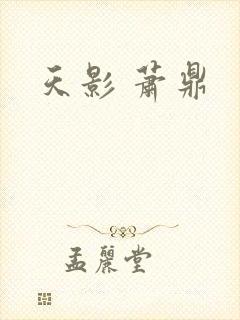 天影 萧鼎
孟麗堂